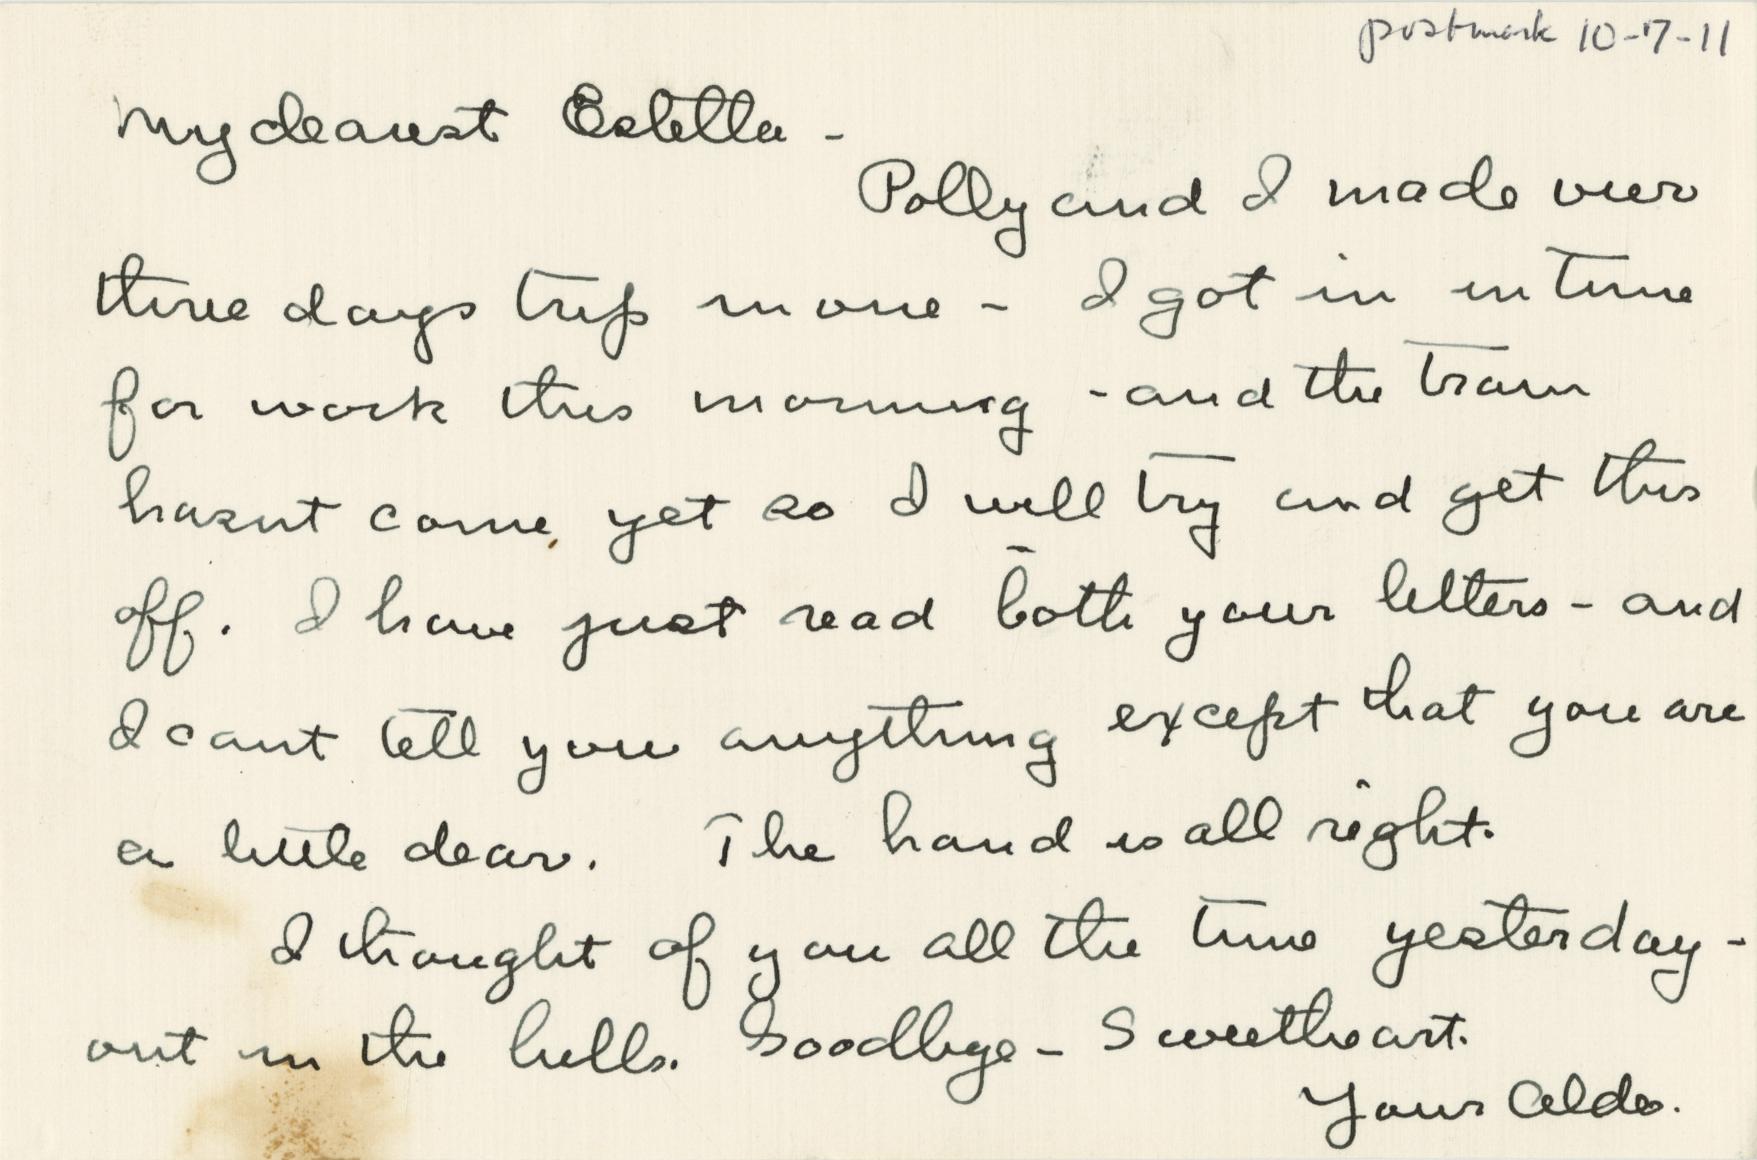 postmark 10-17-11
My dearest Estella -
Polly and I made our
three days trip in one - I got in in time
for work this morning - and the train
hasnt come yet so I will try and get this
off. I have just read both your letters - and
I cant tell you anything except that you are
a little dear. The hand is all right.
I thought of you all the time yesterday -
out in the hills. Goodbye - Sweetheart.
Your Aldo.